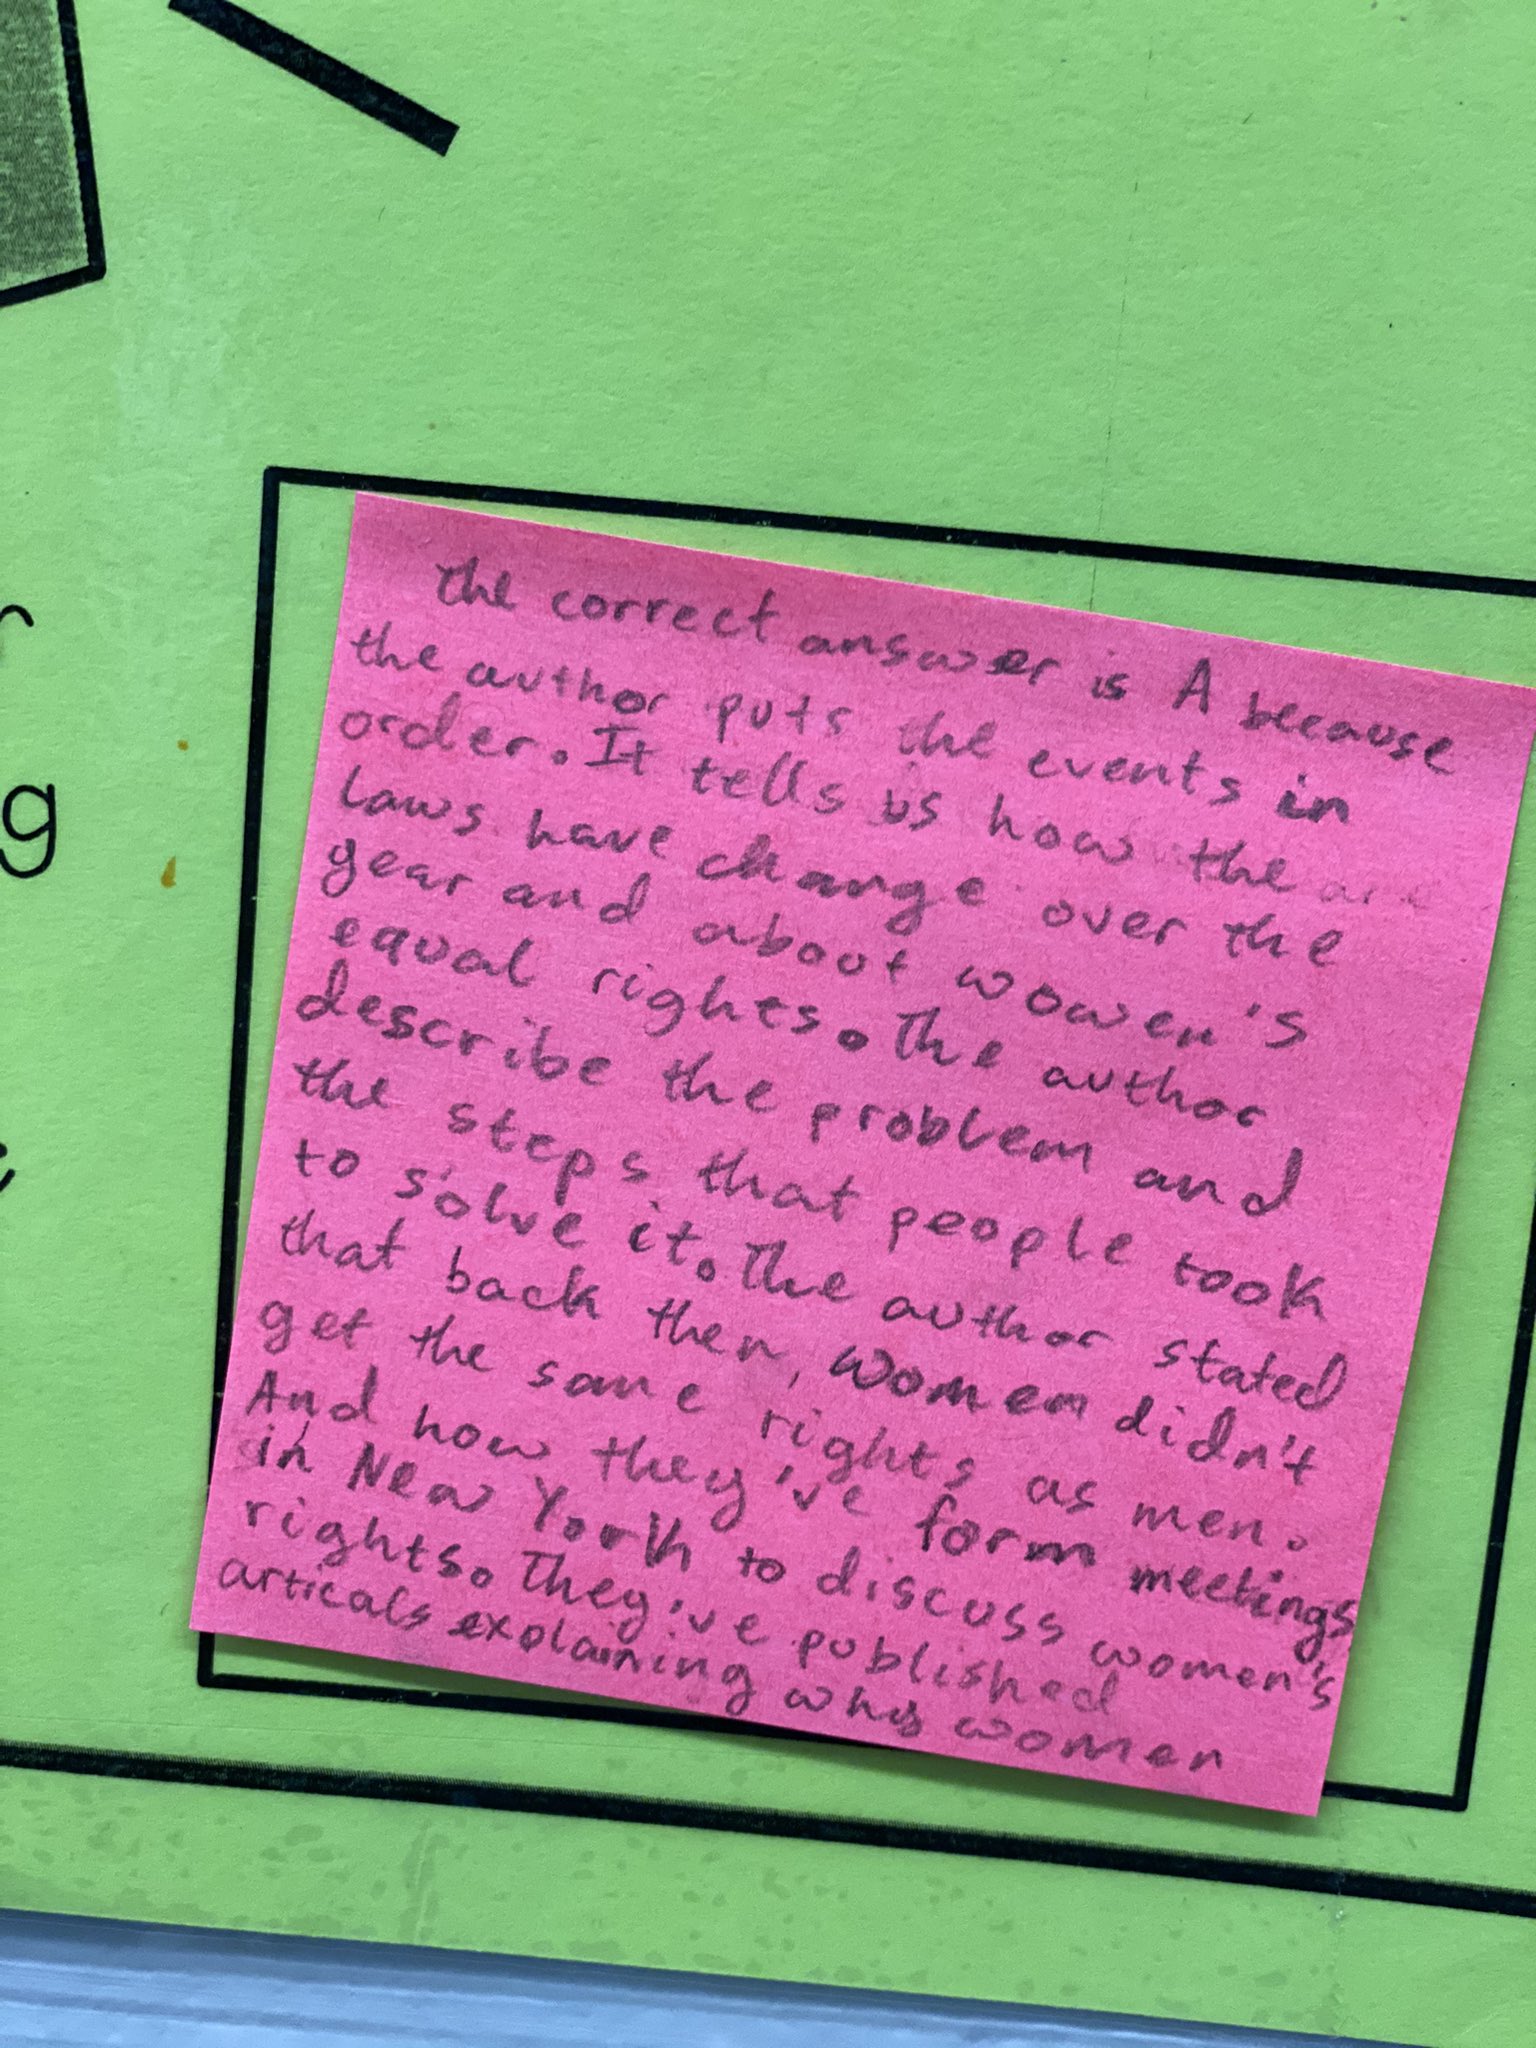 the correct answer is A because
the author puts the events in
order. It tells us how the are
laws have change over the
year and about wowen's
equal rights. The author
describe the problem and
the steps that people took
to solve it. The author stated
that back then, women didn't
get the same rights as men.
And how they've form meetings
in New York to discuss women's
rights. They've published
articals explaining why women
r
g